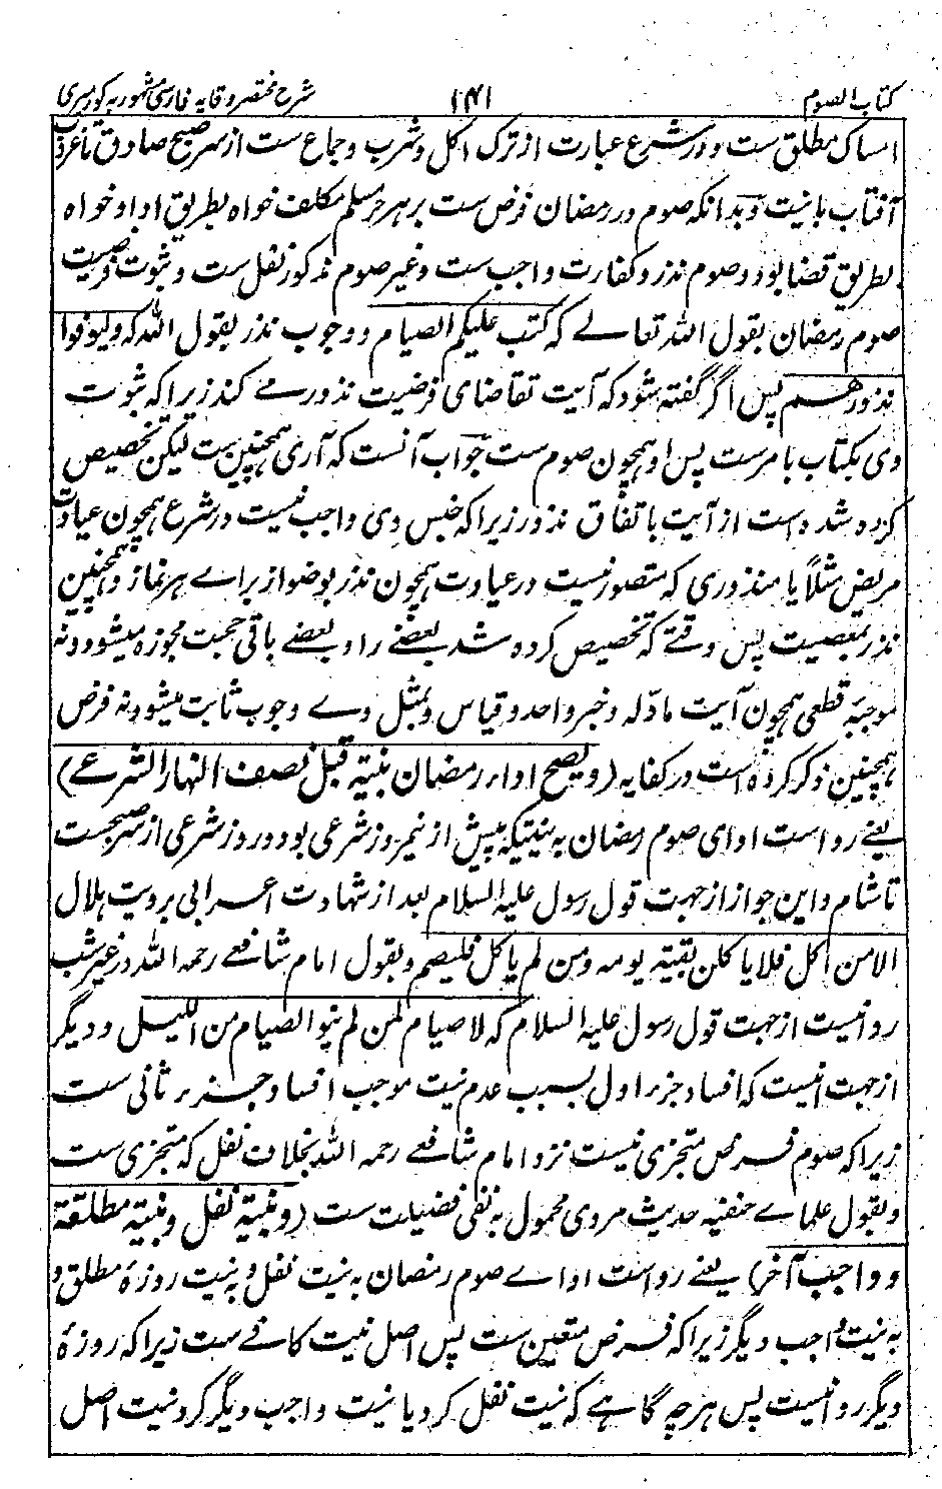 کتاب الصوم ۱۴۱ شرح مختصر وقایه فارسی مشهور به کور میری
امساک مطلق ست و در شرع عبارت از ترک اکل و شرب و جماع ست از سر صبح صادق تا غروب
آفتاب با نیت و بدانکه صوم در رمضان فرض ست بر هر مسلم مکلف خواه بطریق ادا و خواه
بطریق قضا بود و صوم نذر و کفارت واجب ست و غیر صوم مذکور نفل ست و ثبوت فرضیت
صوم رمضان بقول الله تعالے که کتب علیکم الصیام و وجوب نذر بقول الله که ولیوفوا
نذورهم پس اگر گفته شود که آیت تقاضای فرضیت نذور مے کند زیرا که ثبوت
وی بکتاب بامرست پس او همچون صوم ست جواب آنست که آری همچنین ست لیکن تخصیص
کرده شده است از آیت باتفاق نذور زیرا که جنس وی واجب نیست در شرع همچون عیادت
مریض مثلاً یا منذوری که متصور نیست در عبادت همچون نذر بوضو از براے هر نماز و همچنین
نذر بمعصیت پس وقتے که تخصیص کرده شد بعضے را و بعضے باقی حجت مجوزه میشود و نه
موجبۀ قطعی همچون آیت ماؤله و خبر واحد و قیاس و بمثل وے وجوب ثابت میشود نه فرض
همچنین ذکر کرده است در کفایه (ویصح اداء رمضان بنیته قبل نصف النهار الشرعے)
یعنے روا ست ادای صوم رمضان به نیتیکه پیش از نیمروز شرعی بود و روز شرعی از سر صبحست
تا شام و این جواز از جهت قول رسول علیه السلام بعد از شهادت اعرابی برویت هلال
الا من اکل فلا یاکلن بقیته یومه و من لم یاکل فلیصم و بقول امام شافعے رحمه الله در غیر شب
روا نیست از جهت قول رسول علیه السلام که لا صیام لمن لم ینو الصیام من اللیل و دیگر
از جهت انیست که افساد جزء اول بسبب عدم نیت موجب افساد جزء ثانی ست
زیرا که صوم فرض متجزی نیست نزد امام شافعے رحمه الله بخلاف نفل که متجزی ست
و بقول علماے حنفیه حدیث مروی محمول به نفی فضیلت ست (وبنیة نفل وبنیة مطلقة
و واجب آخر) یعنے روا ست اداے صوم رمضان به نیت نفل و به نیت روزۀ مطلق و
به نیت واجب دیگر زیرا که فرض متعین ست پس اصل نیت کافے ست زیرا که روزۀ
دیگر روا نیست پس هرچه گاہے که نیت نفل کرد یا نیت واجب دیگر کرد نیت اصل